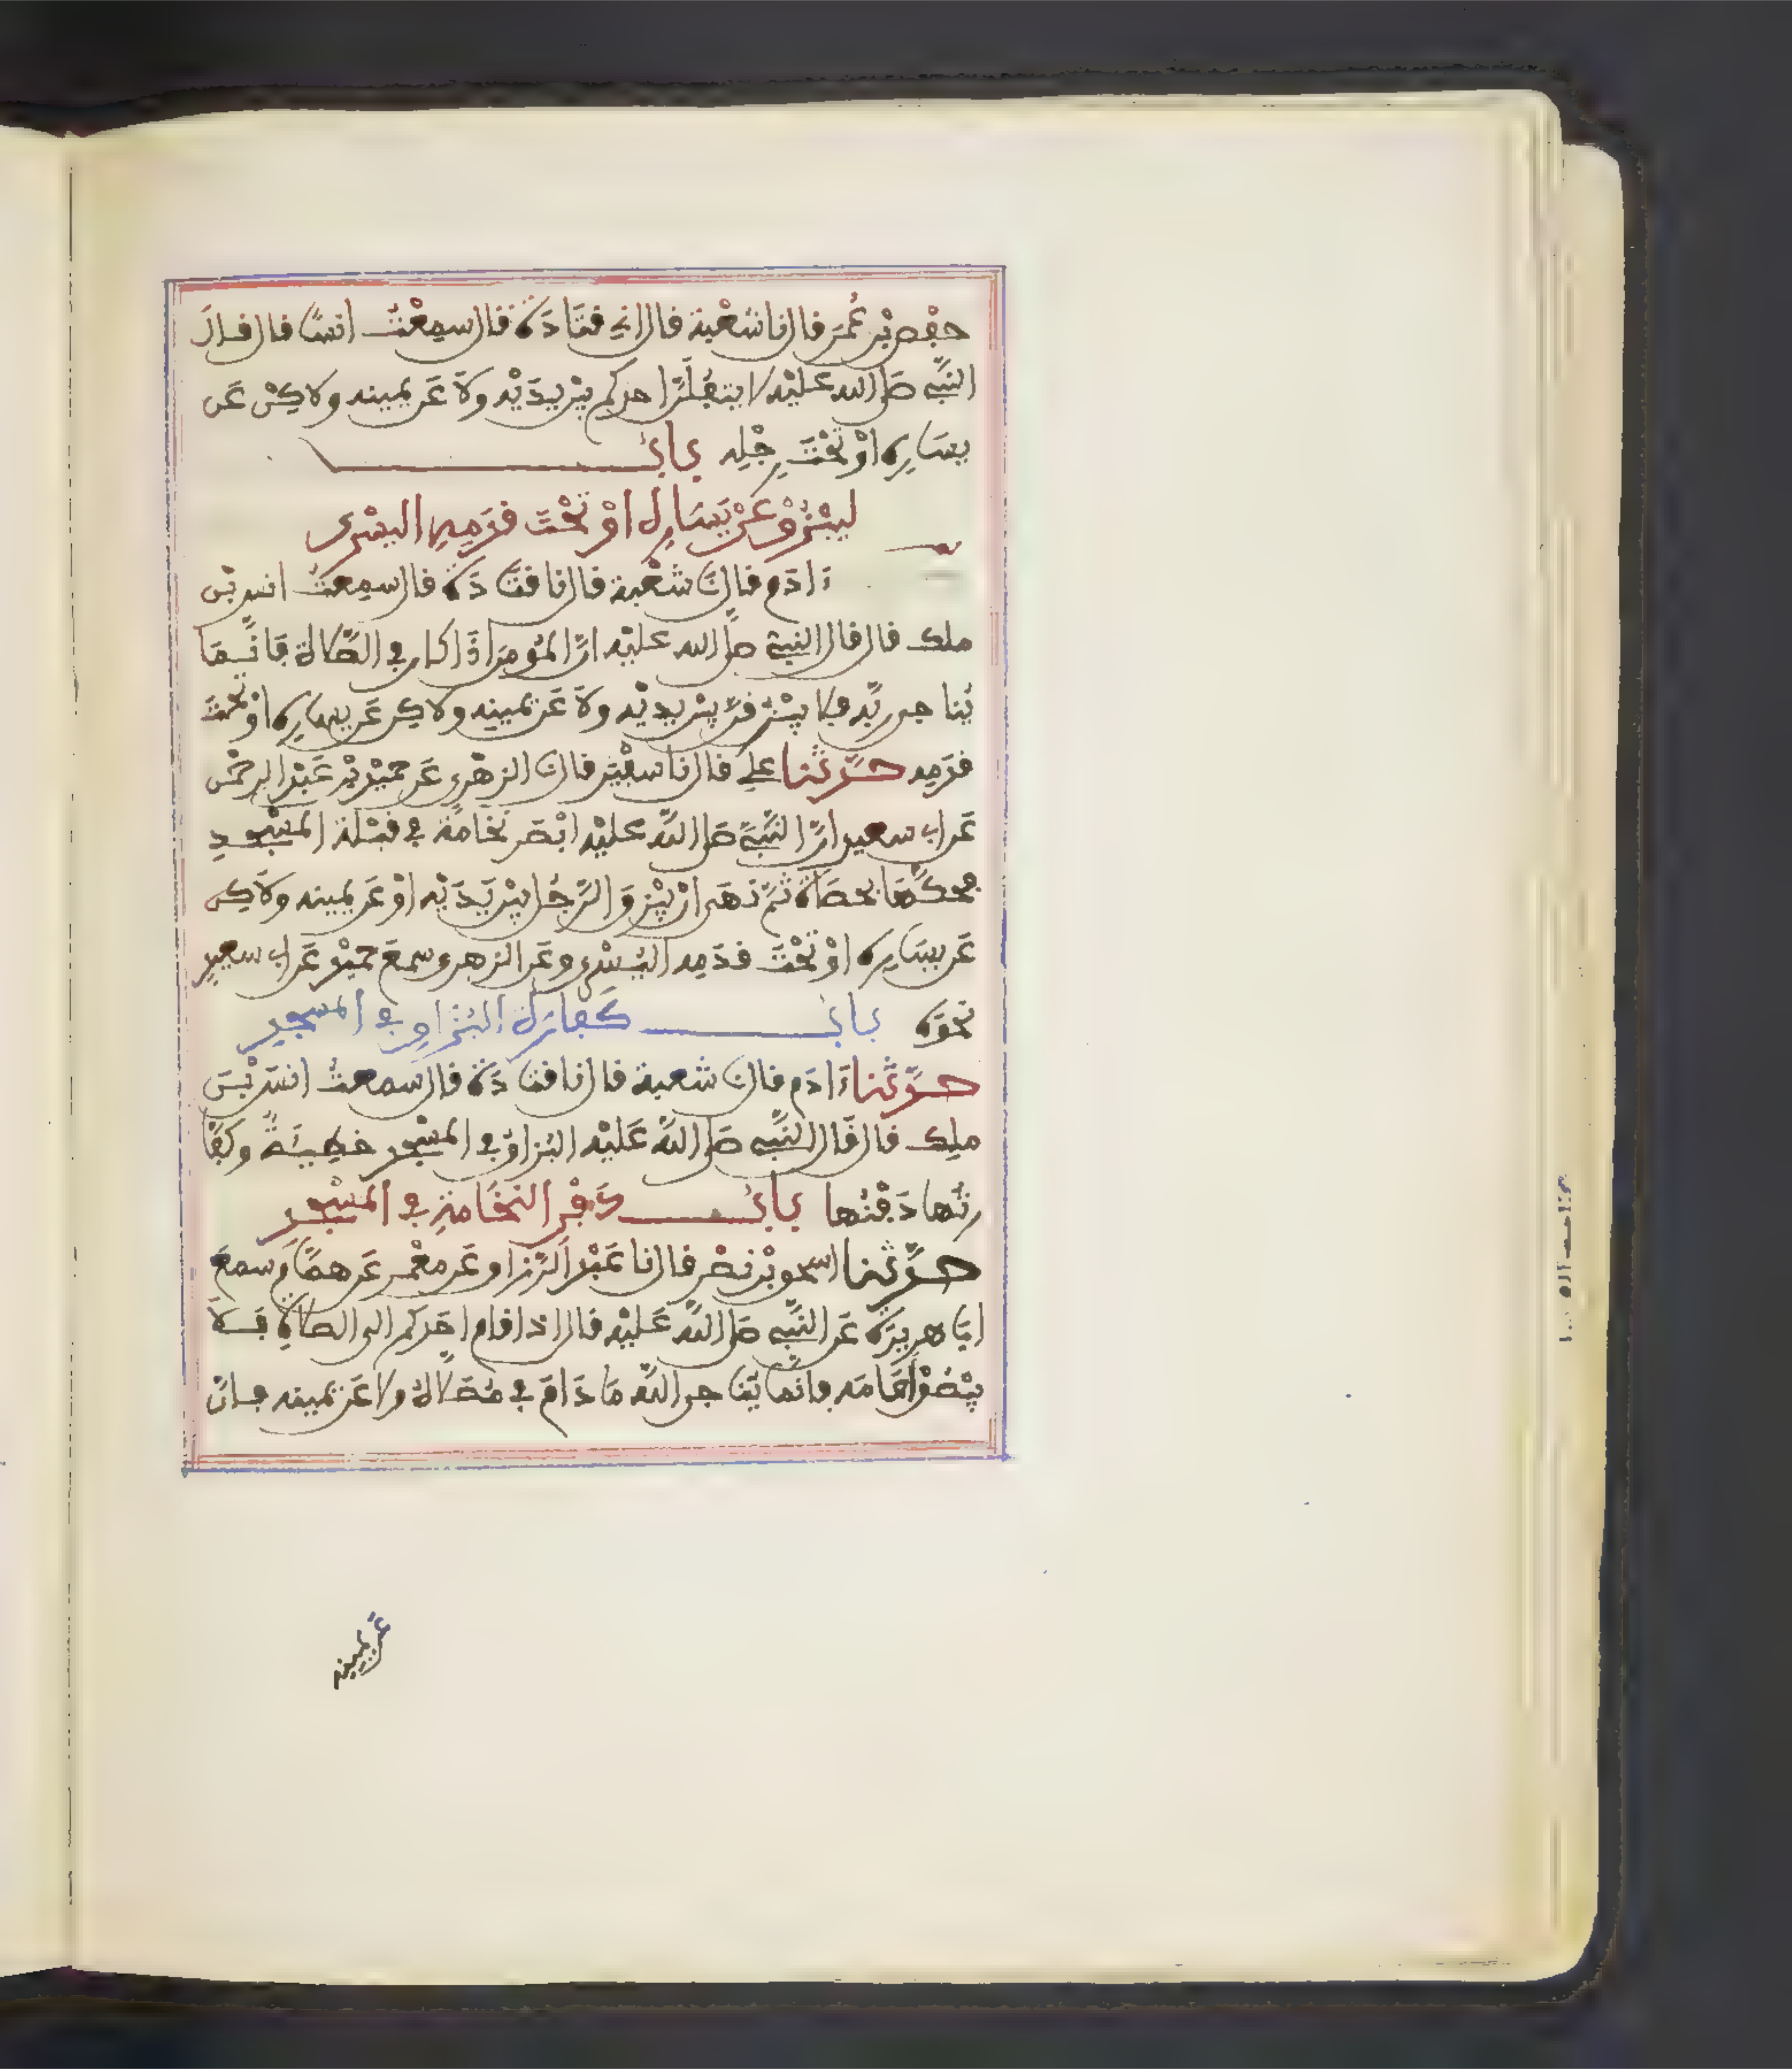 حفص بن عُمَر قال نا شعْبة قال اني قتَادَة قال سمِعْتُ انسًا قال قال
النَّبي صلى الله عليْه لا يتفِلَنَّ احدكم بيْن يدَيْه ولَا عَن يمينه ولاكِنْ عَن
يسَارِه اوْ تحْتَ رِجْلِه بَابٌ
ليبْزُقْ عَنْ يَسَارِهِ اوْ تحْتَ قَدَمِهِ اليسْرى
ءَادَم قال نَا شعْبة قال نا قتَادَة قال سمِعتُ انس بْن
ملك قال قال النبي صلى الله عليْه انَّ المُومِنَ اذَا كان في الصَّلاة فإنَّما
يُناجي ربَّه فلا يبْزُقَنَّ بيْن يديْه ولَا عَن يمينه ولاكِن عَن يسارِه اوْ تحْتَ
قدَمِه حدَّثنا علي قال نا سفْين قال نا الزهْري عَن حميْد بْن عَبْد الرحْمن
عَن ابي سعيد انَّ النَّبيَّ صلى اللَّه عليْه ابْصَر نُخَامَةً في قبْلة المسْجدِ
فحكَّهَا بحصَاة ثمَّ نهَى انْ يبْزقَ الرَّجُل بيْن يَدَيْه اوْ عَن يمينه ولَاكِن
عَن يسَارِه اوْ تحْتَ قدَمِه اليُسْرى وعَن الزهري سمعَ حميْدا عَن ابي سعيدٍ
نحوَه بَابُ كَفارَة البُزَاقِ في المسجدِ
حدَّثنا ءَادَم قال نا شعبة قال نا قتادَة قال سمعتُ انسَ بْنَ
ملك قال قَال النَّبي صلى اللَّه عَليْه البُزاقُ في المسْجد خطِيئَةٌ وكفَّا
رتُها دَفْنُها بَابُ دَفْنِ النخَامَةِ في المسْجدِ
حدَّثنا اسحٰق بْن نصْر قال نا عَبْد الرَّزاق عَن معْمر عَن همَّام سمعَ
ابَا هريرَة عَن النَّبي صلى اللَّه عَليْه قال اذا قام احَدكم الى الصلاةِ فَلَا
يبْصُقْ امَامَه فإنَّما يُنَاجي اللَّه مَا دَامَ في مُصَلَّاهُ ولا عَن يمينه فإنَّ
عَن يمينِه